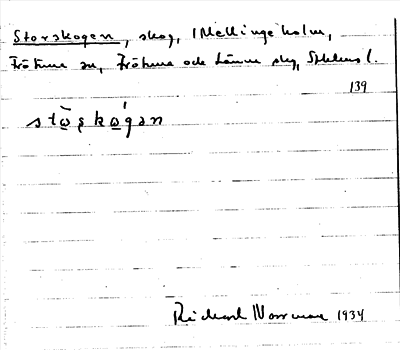 Storskogen, skog, Mellingeholm,
Frötuna sn, Frötuna och Länna skg, Sthlms l.
139
stòʂkó̱gən
Richard Norrman 1934